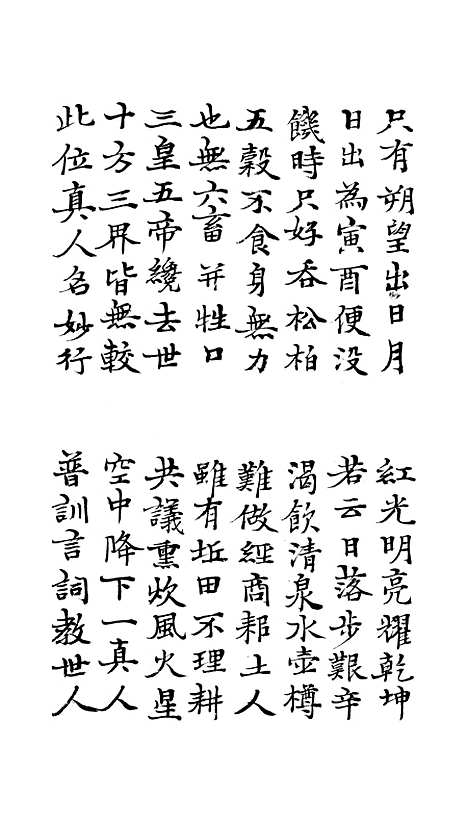 只有朔望出日月
紅光明亮耀乾坤
日出為寅酉便没
若云日落步艱辛
饑時只好吞松柏
渴飲清泉水壺樽
五穀不食身無力
難做經商耕土人
也無六畜并牲口
雖有坵田不理耕
三皇五帝纔去世
共議熏炊風火星
十方三界皆無較
空中降下一真人
此位真人名妙行
普訓言詞教世人